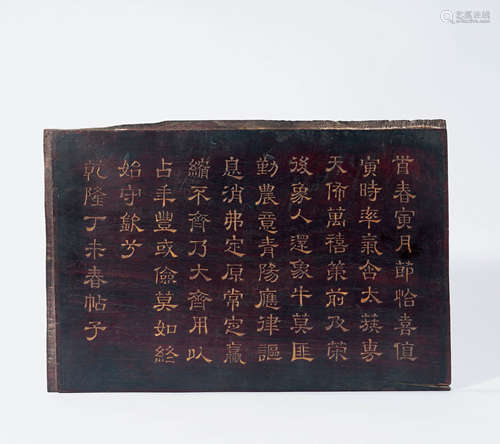 首春寅月節恰喜值
寅時率氣含太蔟專
天佈萬禧策前及榮
後象人還象牛莫匪
勤農意青陽應律謳
息消弗定原常定贏
縮不齊乃大齊用以
占年豐或儉莫如終
始守欽兮
乾隆丁未春帖子